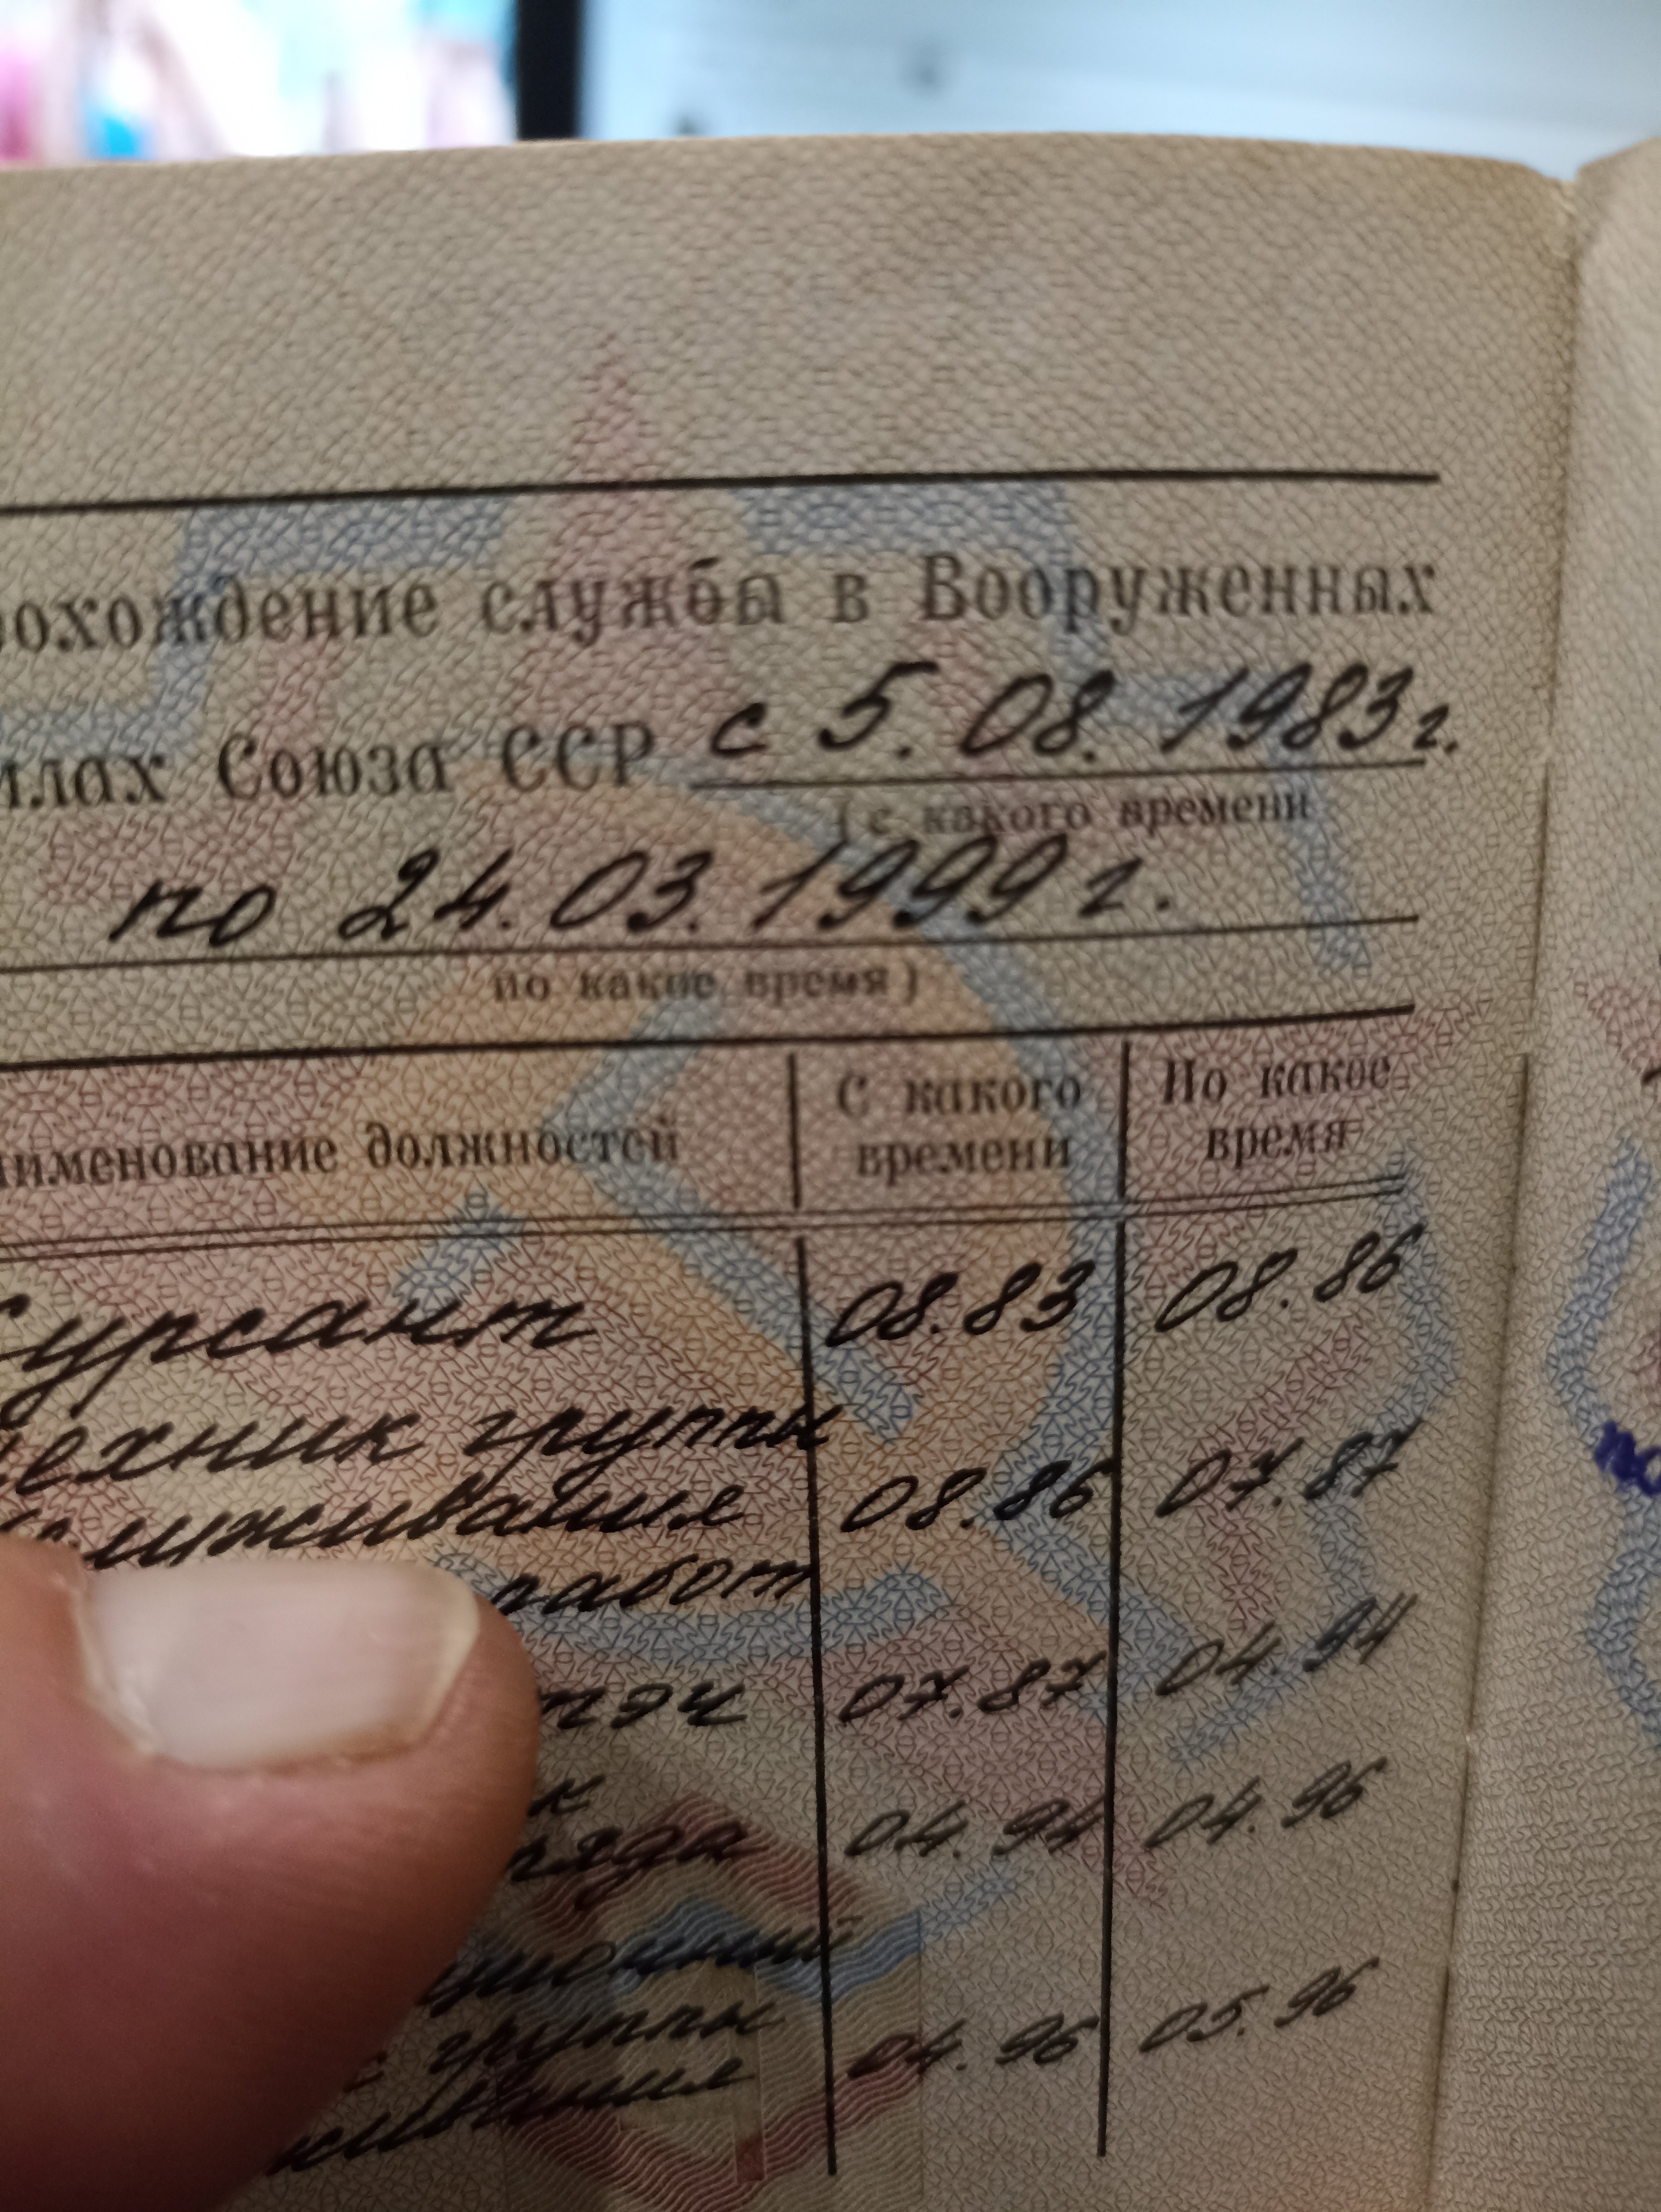 рохождение службы в Вооруженных
илах Союза ССР с 5.08.1983г.
(с какого времени
по 24.03.1999г.
по какое время)
аименование должностей
С какого времени
По какое время
Курсант 08.83 08.86
Техник группы
служивания 08.86 07.87
работ
ТЭЧ 07.87 04.94
к
ряда 04.94 04.96
группы
живания 04.96 05.96
по